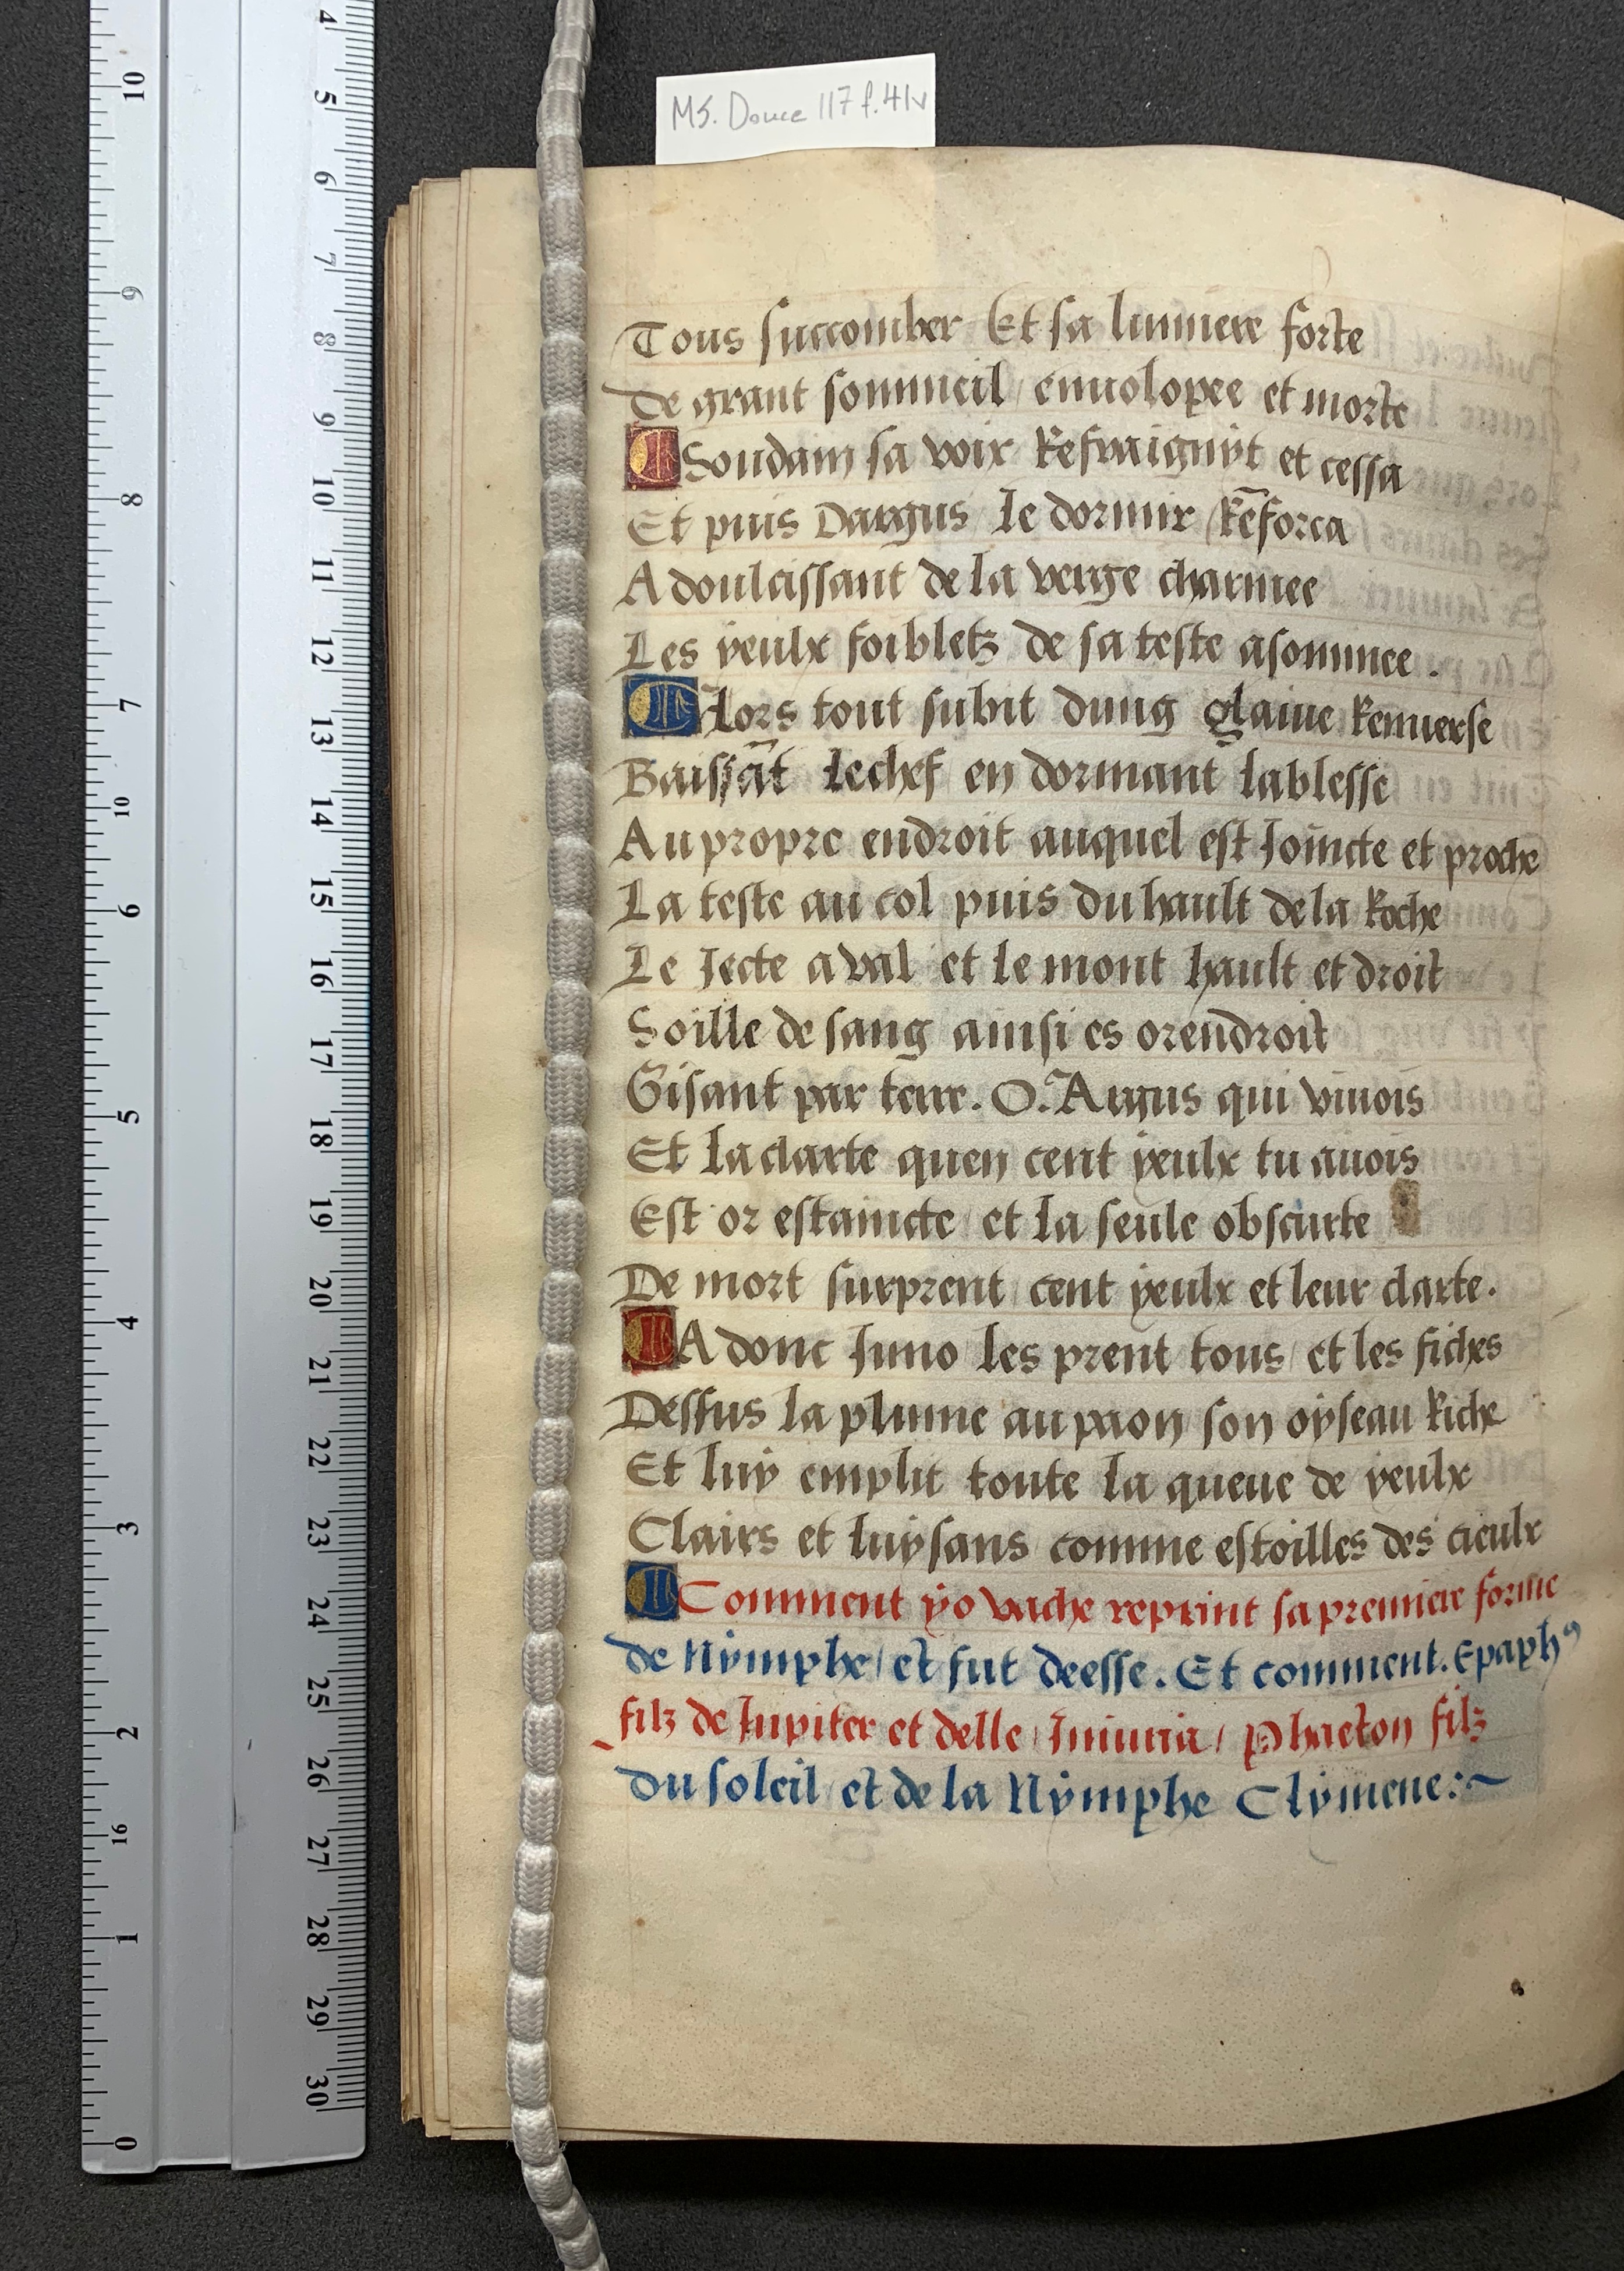 MS. Douce 117 f. 41v
Tous succomber Et sa lumiere forte
de grant sommeil / enuolopee et morte
Soudain sa voix Refraignyt et cessa
Et puis Dargus le dormir / Rēforca
Adoulcissant de la verge charmee
Les yeulx foibletz de sa teste asommee.
Alors tout subit dung glaiue Renuerse
Baissāt le chef en dormant la blesse
Au propre endroit auquel est Joincte et proche
La teste au col puis du hault de la Roche
Le Jecte a val et le mont hault et droit
Soille de sang ainsi es orendroit
Gisant par terre. O. Argus qui viuois
Et la clarte quen cent yeulx tu auois
Est or estaincte / et la seule obscurte
De mort surprent cent yeulx et leur clarte.
Adonc Juno les prent tous / et les fiches
Dessus la plume au paon son oyseau Riche
Et luy emplit toute la queue de yeulx
Clairs et luysans comme estoilles des cieulx
Comment yo vache reprint sa premiere forme
de Nymphe / et fut deesse. Et comment. Epaphꝰ
filz de Jupiter et delle / Iniuria / Phaeton filz
du soleil / et de la Nymphe Clymene:~
4
5
6
7
8
9
10
11
12
13
14
15
16
17
18
19
20
21
22
23
24
25
26
27
28
29
30
10
9
8
7
10
6
5
4
3
2
16
1
0